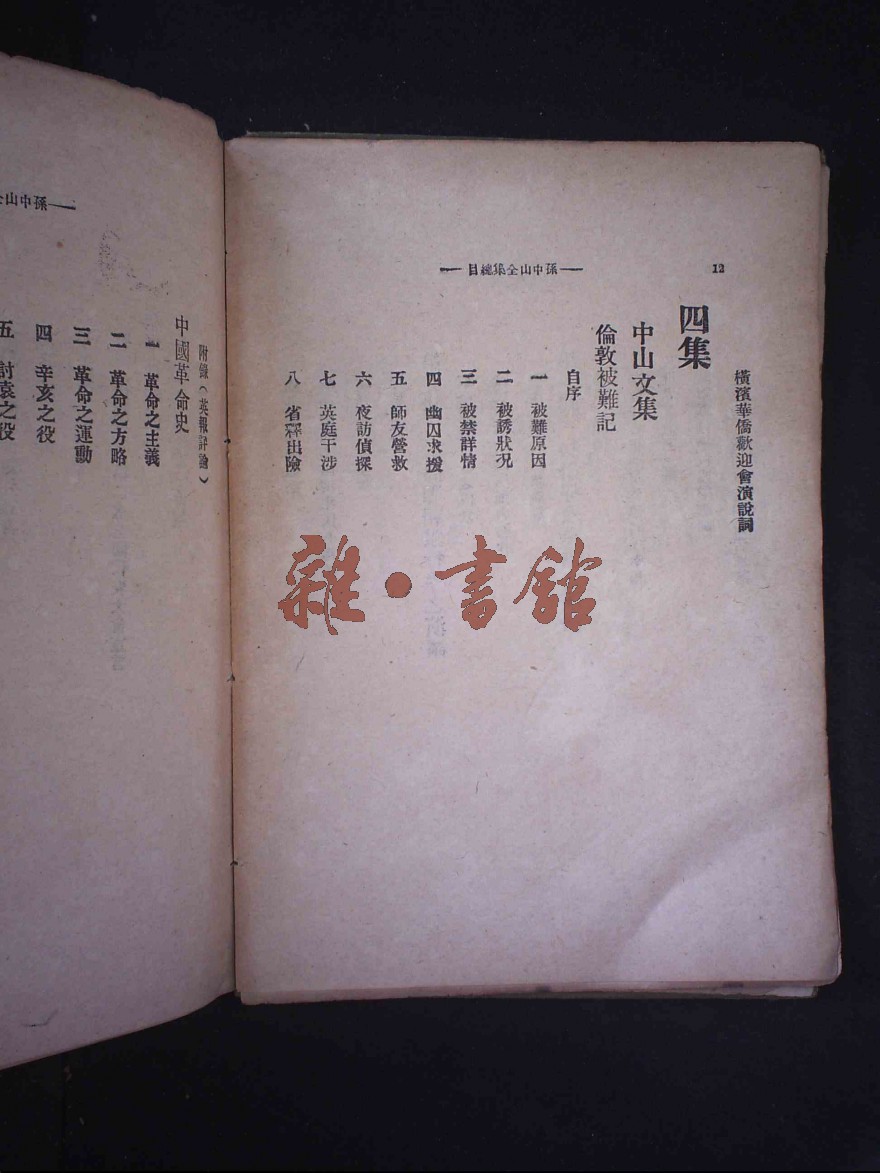 12
—孫中山全集總目—
橫濱華僑歡迎會演說詞
四集
中山文集
倫敦被難記
自序
一 被難原因
二 被誘狀况
三 被禁詳情
四 幽囚求援
五 師友營救
六 夜訪偵探
七 英庭干涉
八 省釋出險
—孫中山全
附錄(英報評論)
中國革命史
一 革命之主義
二 革命之方略
三 革命之運動
四 辛亥之役
五 討袁之役
雜•書館